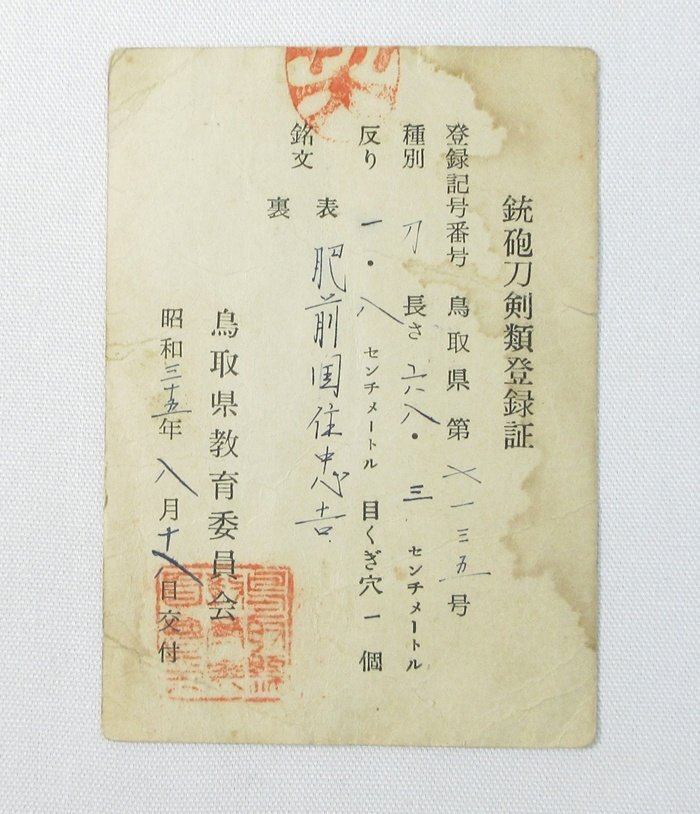 銃砲刀剣類登録証
登録記号番号 鳥取県 第 七一三五 号
種別 刀 長さ 六八・三 センチメートル
反り 一・八 センチメートル 目くぎ穴 一 個
銘文 表 肥前国住忠吉
裏
鳥取県教育委員会
昭和三十五年 八月十八日交付